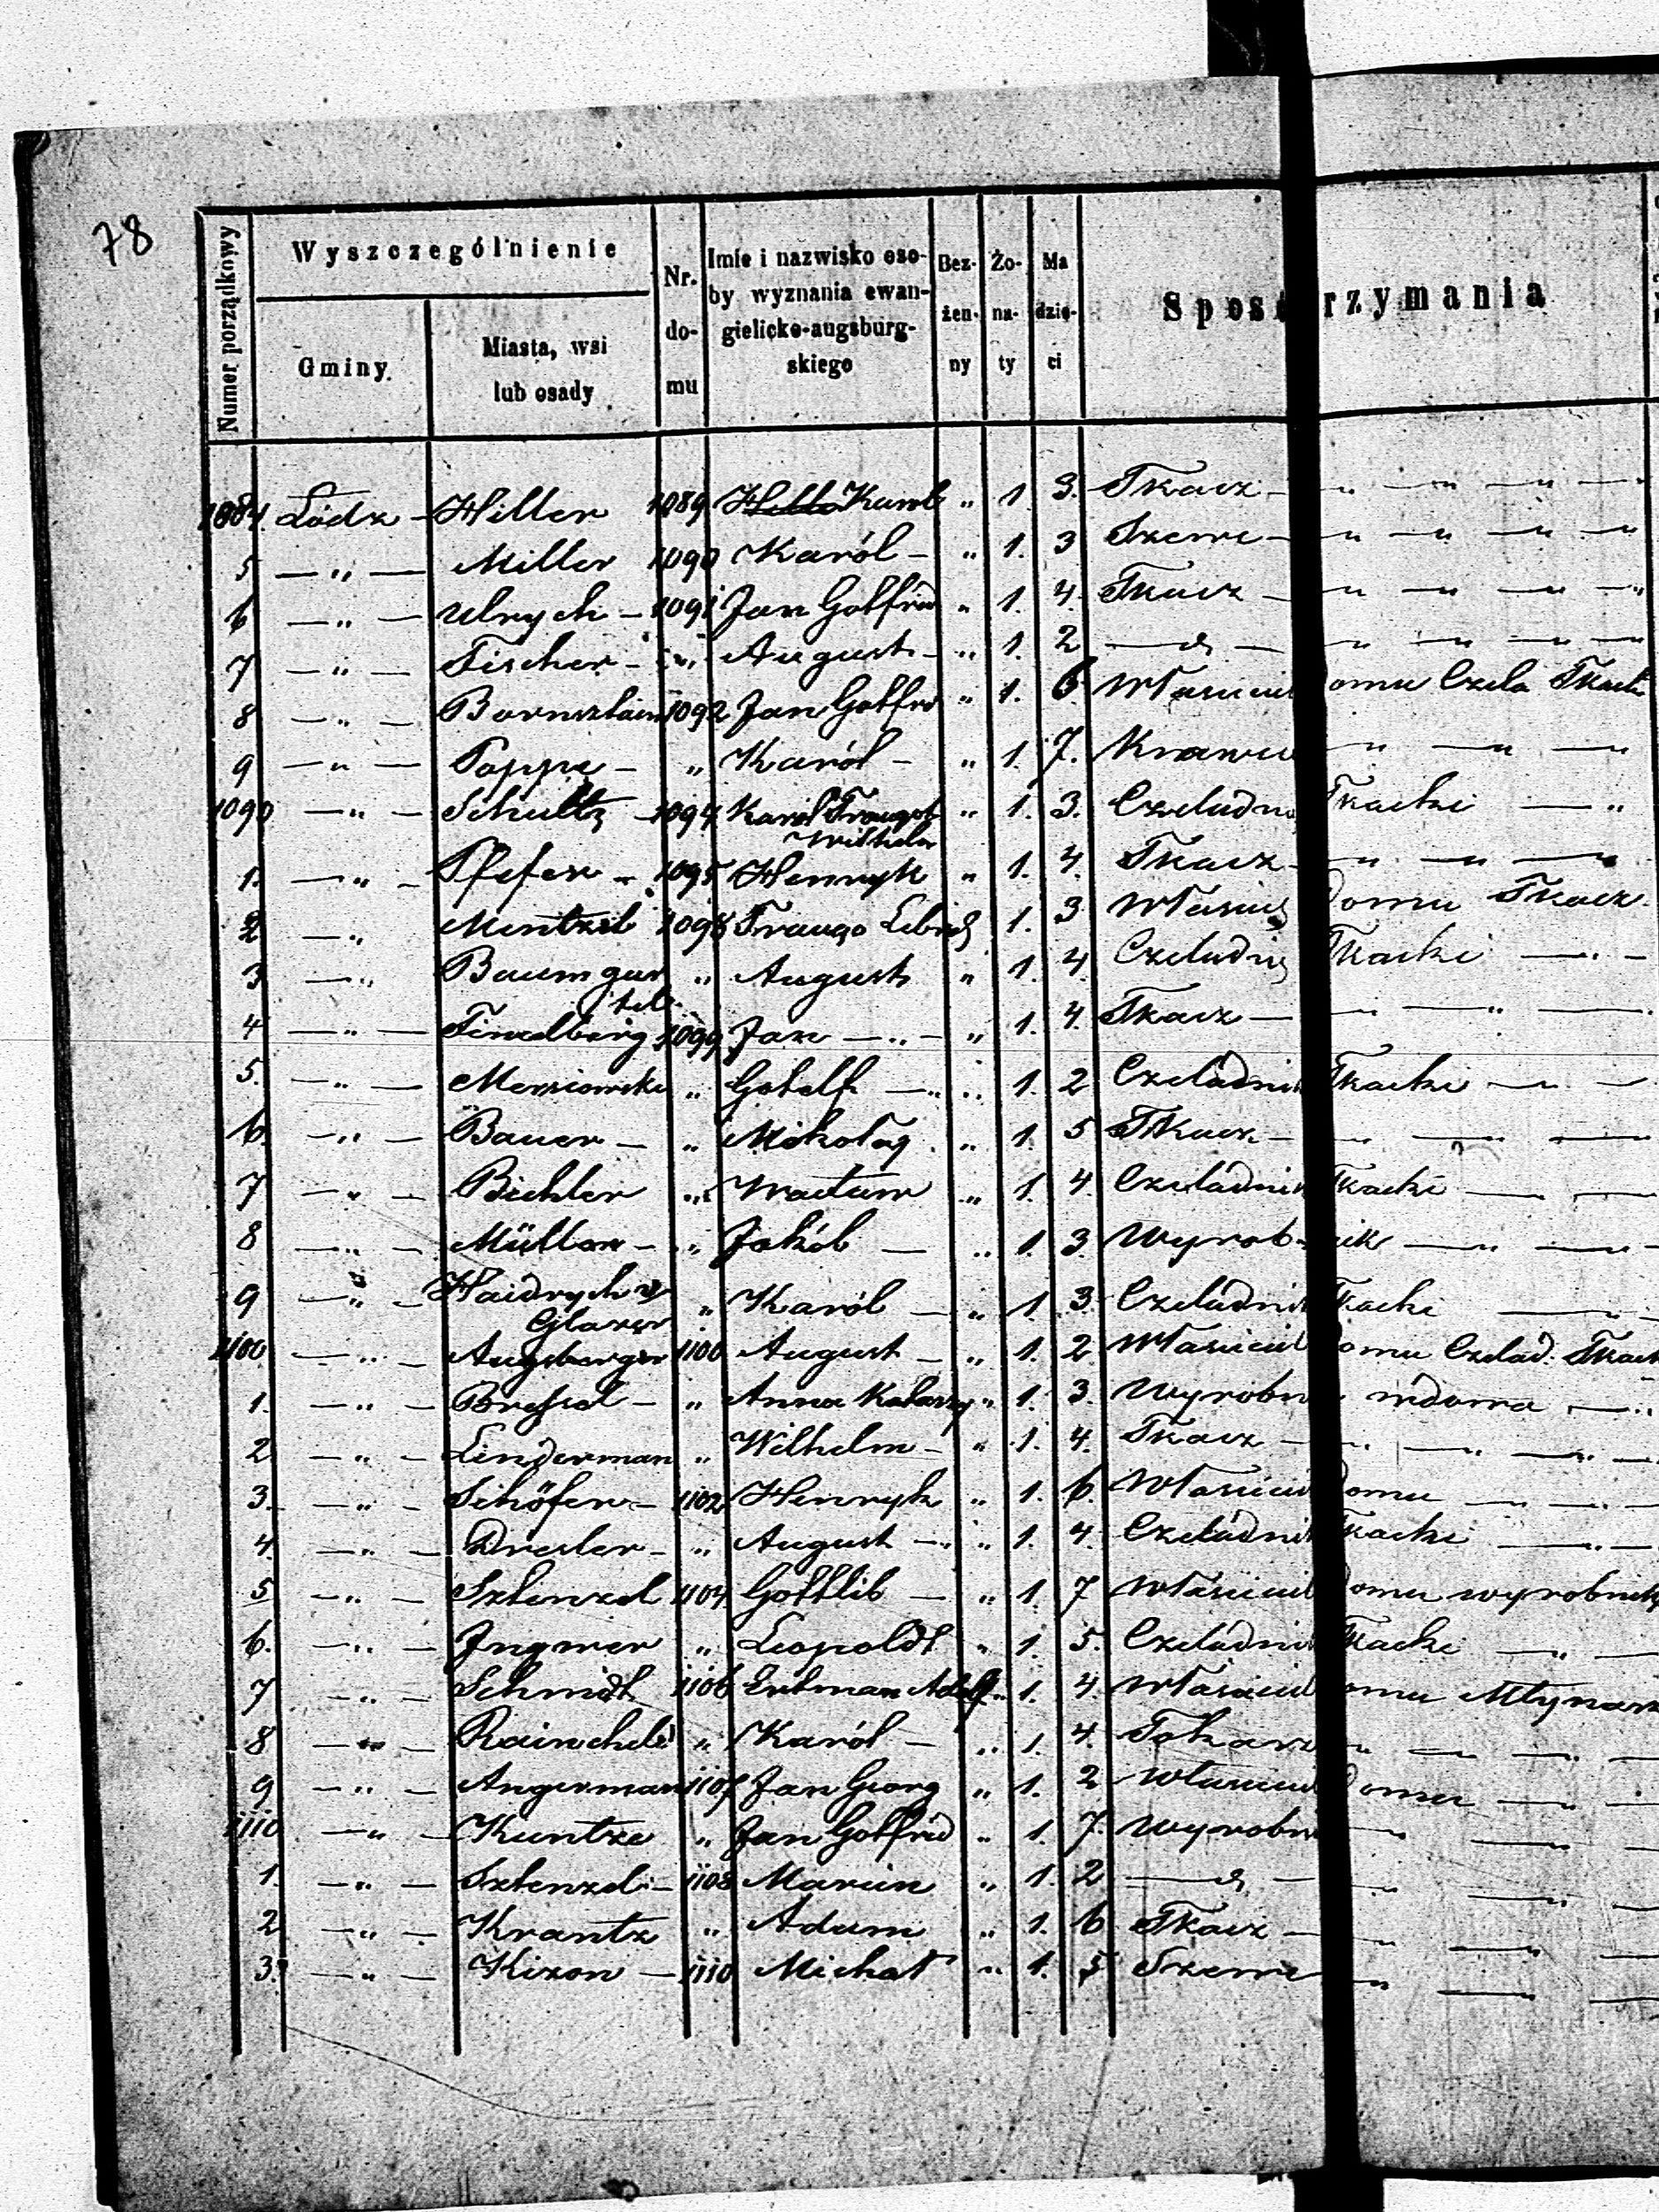 78
Numer porządkowy
Wyszczególnienie
Gminy.
Miasta, wsi
lub osady
Nr.
do-
mu
Imie i nazwisko oso-
by wyznania ewan-
gielicko-augsburg-
skiego
Bez-
żen-
ny
Żo-
na-
ty
Ma
dzie-
ci
Spos rzymania
1084. Łódz - Hiller 1089 Karol " 1 3. Tkacz - " — " — " —
5 — " — Miller 1090 Karól - " 1. 3 Szewc - " — " — " —
6 — " — Ulrych - 1091 Jan Gotfrid " 1. 4. Tkacz - " — " — " —
7 — " — Fischer - " August - " 1. 2 — " — " — " — " —
8 — " — Bornsztain 1092 Jan Gotfrid " 1. 6 Właściciel omu Czela Tkacki
9 — " — Poppe - " Karól - " 1. 7. Krawie " — " — " —
1090 — " — Schultz - 1094 Karól Traugot " 1. 3. Czeladni Tkacki — "
Wilhelm
1. — " — Pfefer - 1095 Henryk " 1. 4. Tkacz - " — " —
2 — " Mentzel 1098 1. 3 Właścici domu Tkacz
3 — " Baumgar " August " 1. 4 Czeladni Tkacki — " —
tel
4 — " — 1099 Jan — " — " 1. 4. Tkacz — " — " —
5. — " — " Gotelf — " " 1. 2 Czeladnik Tkacki — " —
6 — " — Bauer - " Mikołaj " 1. 5 Tkacz - " — " —
7 — " — Bichler " Wacław " 1. 4. Czeladnik Tkacki — " —
8 — " — Müller - " Jakób — " 1. 3. Wyrob-nik — " — " —
9 — " — Haidrych v " Karól — " 1 3. Czeladnik Tkacki — " —
Glaser
1100 — " — Augsberger 1100 August — " 1. 2 Właściciel omu Czelad. Tkack
1. — " — Bressel - " Anna Katarzy " 1. 3. Wyrobni wdowa — "
2 — " — Linderman " Wilhelm - " 1. 4. Tkacz - " — " —
3. — " — Schöfer - 1102 Henryk " 1. 6. Właściciel omu — " —
4. — " — Dresler - " August — " 1. 4. Czeladnik Tkacki — " —
5 — " — Sztenzel 1104 Gottlib — " 1. 7 Właściciel Domu wyrobnik
6. — " — Ingwer " Leopoldt " 1. 5. Czeladnik Tkacki — " —
7 — " — Schmidt 1106 Ertman Adolf " 1. 4. Właściciel omu Młynarz
8 — " — " Karól — " 1. 4. Tokarz " — " —
9 — " — Angerman 1107 Jan Georg " 1. 2 Właściciel Domu — " —
1110 — " — Kuntze " Jan Gotfrid " 1. 7. Wyrobni — " —
1. — " — Sztenzel - 1108 Marcin " 1. 2 — " — " —
2 — " — Krantz " Adam " 1. 6 Tkacz — " —
3. — " — Kizon — 1110 Michał " 1. 5 Szewc — " —